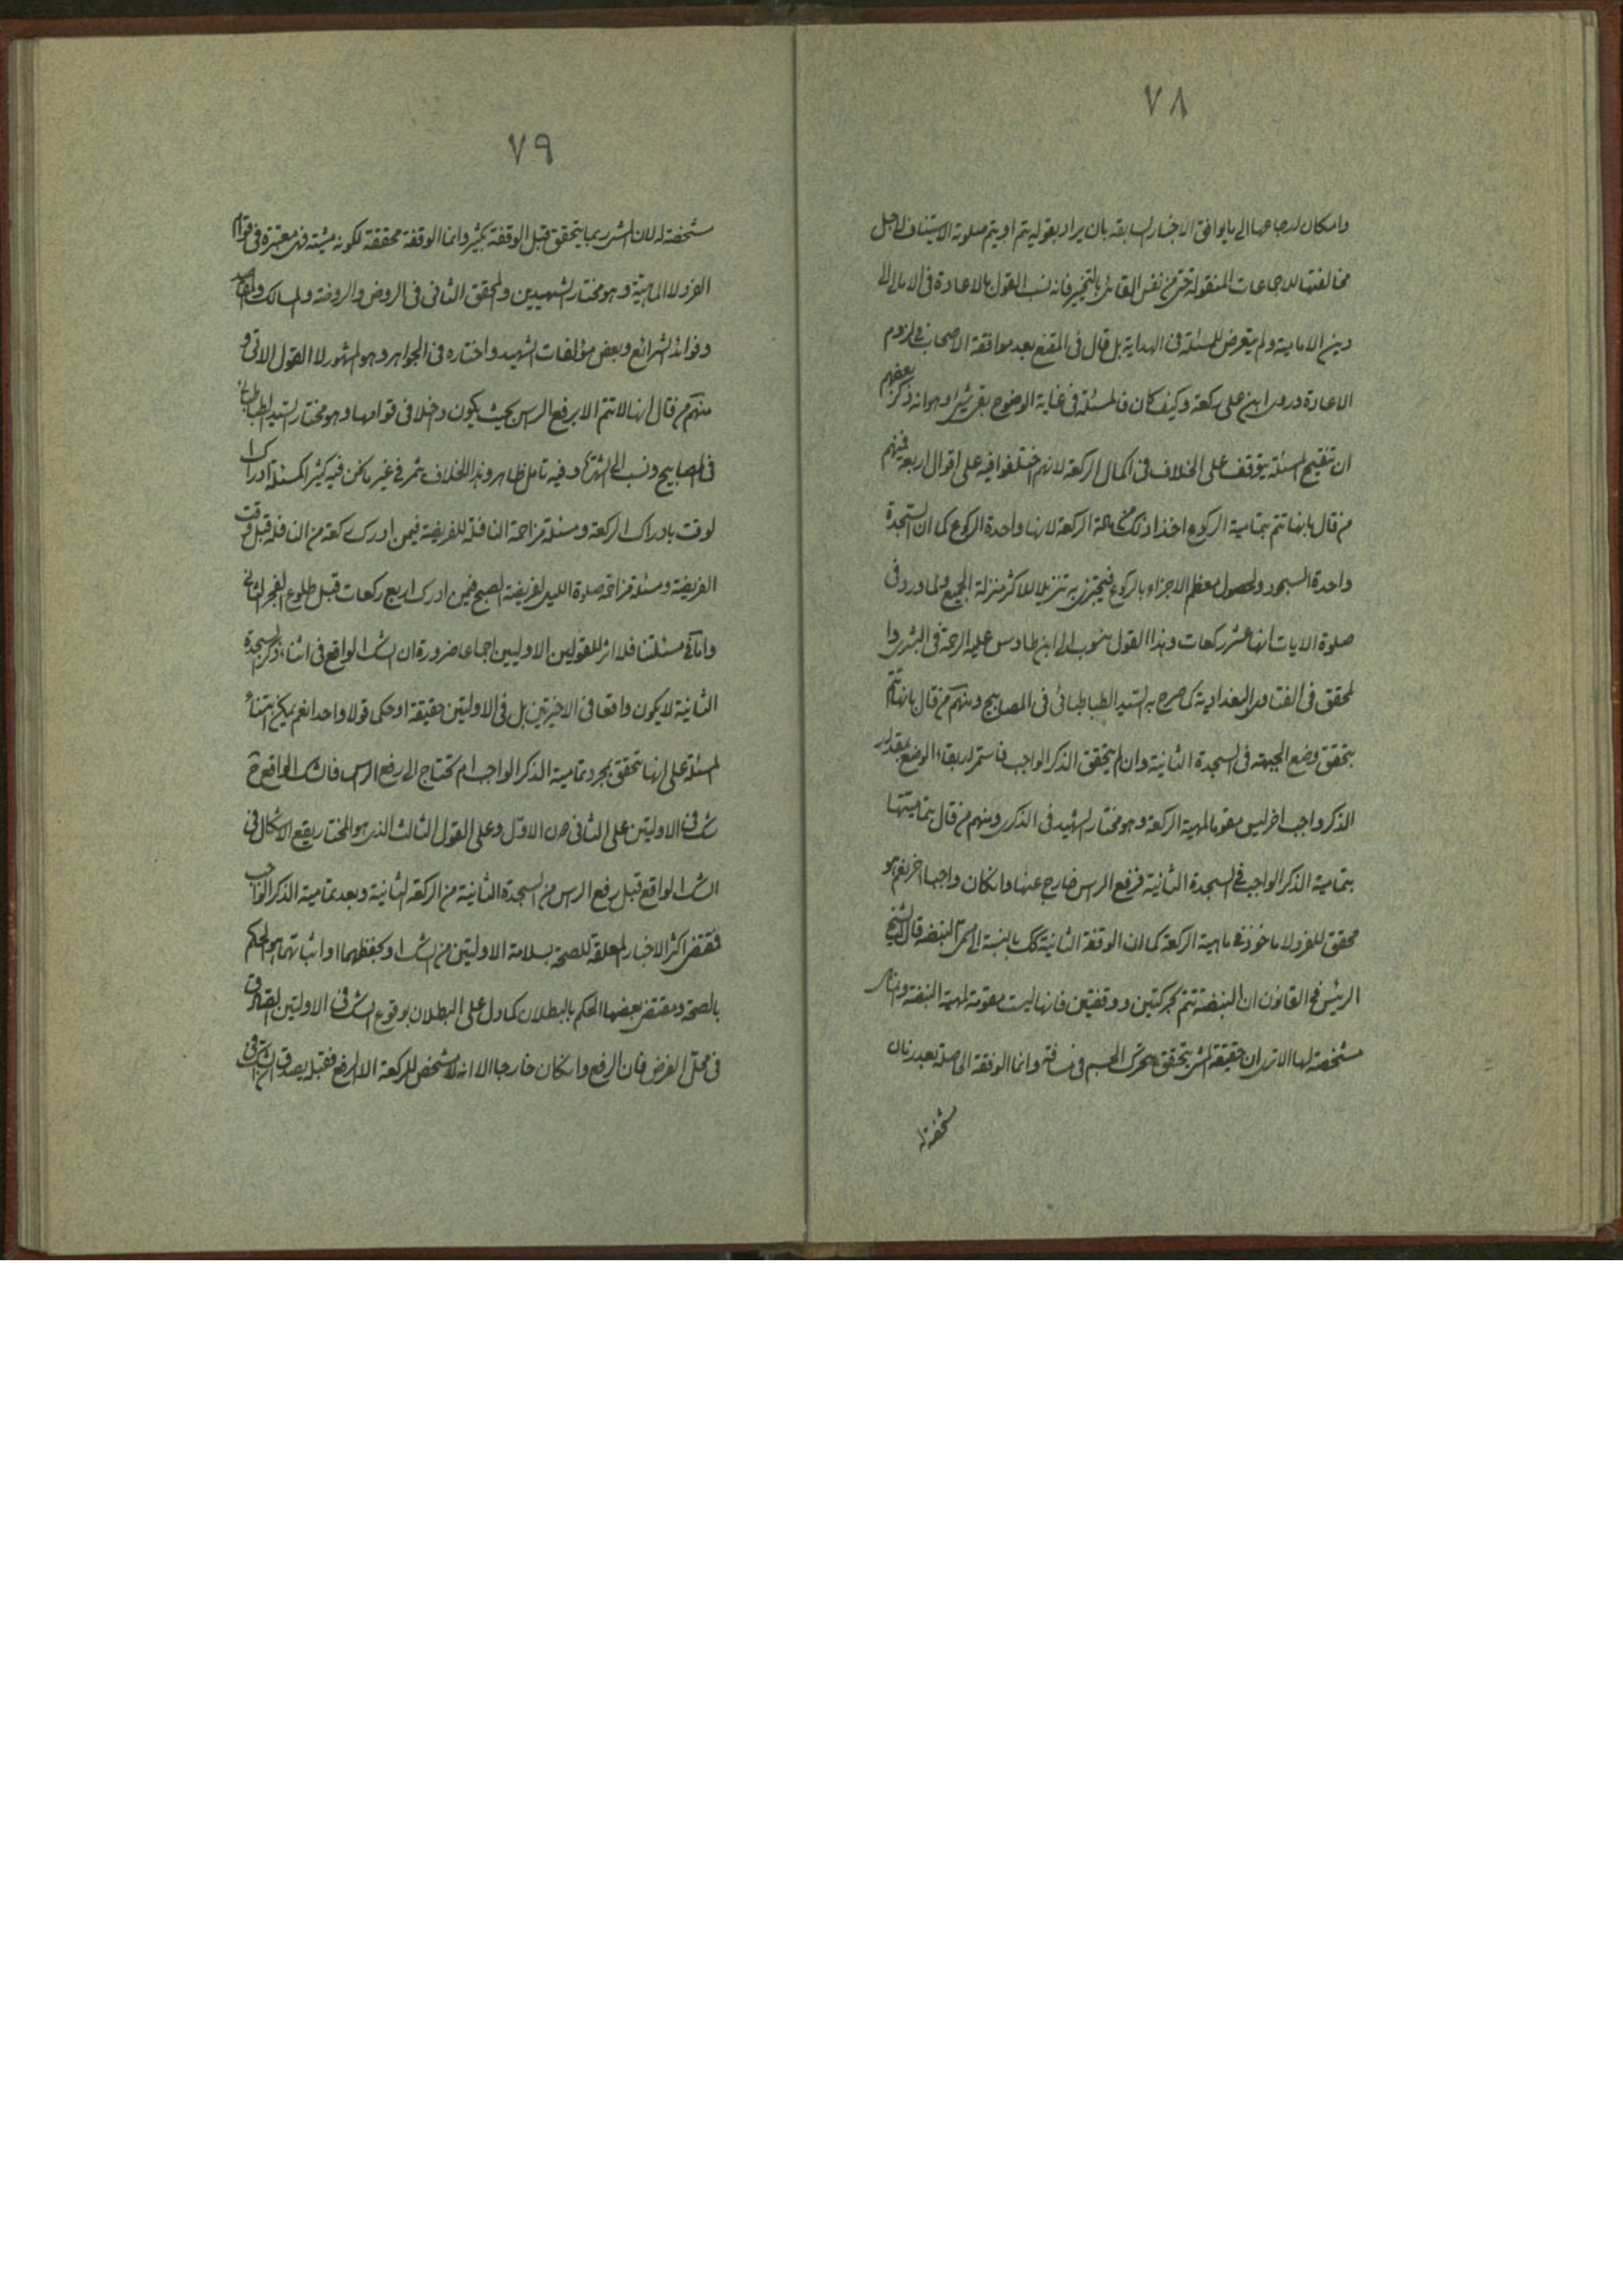 ٧٨
وامكان ارجاعها الى ما يوافق الاخبار السابقه بان يراد بقوله يتم او يتم صلوته الاستيناف لاجل
مخالفتها للاجماعات المنقولة حتى من نفس القائل بالتخيير فانه نسب القول بالاعادة فى الامالى الى
دين الامامية ولم يتعرض للمسئلة فى الهداية بل قال فى المقنع بعد موافقة الاصحاب فى لزوم
الاعادة وروى ابن على ركعة وكيف كان فالمسئلة فى غاية الوضوح بقى شىء وهو انه ذكر بعضهم
ان تنقيح المسئلة يتوقف على الخلاف فى اكمال الركعة لانهم اختلفوا فيه على اقوال اربعة فمنهم
من قال بانها تتم بتمامية الركوع اخذا ذلك من كلمة الركعة لانها واحدة الركوع كما ان السجدة
واحدة السجود ولحصول معظم الاجزاء بالركوع فيجتزى به تنزيلا للاكثر منزلة الجميع ولما ورد فى
صلوة الايات انها عشر ركعات وهذا القول منسوب الى ابن طاوس عليه الرحمة فى البشرى وا
لمحقق فى الفتاوى البغدادية كما صرح به السيد الطباطبائى فى المصابيح ومنهم من قال بانها تتم
بتحقق وضع الجبهة فى السجدة الثانية وان لم يتحقق الذكر الواجب فاستمرار بقاء الوضع بمقدار
الذكر واجب اخر ليس مقوما لمهية الركعة وهو مختار الشهيد فى الذكرى ومنهم من قال بتماميتها
بتمامية الذكر الواجب فى السجدة الثانية فرفع الرس خارج عنها وان كان واجبا اخر نعم هو
محقق للغو لا ماخوذ فى ماهية الركعة كما ان الوقفة الثانية كك بالنسبة الى النبضة قال الشيخ
الرئيس فى القانون ان النبضة تتم بحركتين ووقفتين فانها ليست مقومة لمهية النبضة وانما
مشخصة لها الا ترى ان حقيقة المشى يتحقق بتحرك الجسم فى مسافة وانما الوقفة الحاصلة بعد زمان
مشخصة
٧٩
مشخصة له لان المشى ربما يتحقق قبل الوقفة بكثير وانما الوقفة محققة لكونه مشية فهى معتبرة فى قوام
الفرد لا الماهية وهو مختار الشهيدين والمحقق الثانى فى الروض والروضة والمسالك والمقاصد
وفوائد الشرائع وبعض مؤلفات الشهيد واختاره فى الجواهر وهو المشهور لا القول الاتى و
منهم من قال انها لا تتم الا برفع الرس بحيث يكون دخلا فى قوامها وهو مختار السيد الطباطبائى
فى المصابيح ونسب الى الشهرة وفيه تامل ظاهر وهذا الخلاف يثمر فى غير ما نحن فيه كثيرا كمسئلة ادراك ا
لوقت بادراك الركعة ومسئلة مزاحمة النافلة للفريضة فيمن ادرك ركعة من النافلة قبل وقت
الفريضة ومسئلة مزاحمة صلوة الليل لفريضة الصبح فيمن ادرك اربع ركعات قبل طلوع الفجر الثانى
واما فى مسئلتنا فلا اثر للقولين الاوليين اجماعا ضرورة ان الشك الواقع فى اثناء ذكر السجدة
الثانية لا يكون واقعا فى الاخيرتين بل فى الاوليتين حقيقة او حكما قولا واحدا نعم يمكن ابتناء
المسئلة على انها تتحقق بمجرد تمامية الذكر الواجب ام تحتاج الى رفع الرس فالشك الواقع ح
شك فى الاوليتين على الثانى دون الاول وعلى القول الثالث الذى هو المختار يقع الاشكال فى
الشك الواقع قبل رفع الرس من السجدة الثانية من الركعة الثانية وبعد تمامية الذكر الواجب
فمقتضى اكثر الاخبار المعلقة للصحة بسلامة الاوليتين من الشك او بحفظهما او اثباتهما هو الحكم
بالصحة ومقتضى بعضها الحكم بالبطلان كما دل على البطلان بوقوع الشك فى الاوليتين الصادق
فى محل الفرض فان الرفع وان كان خارجا الا انه لا مشخص للركعة الا الرفع فقبله يصدق الشك فى